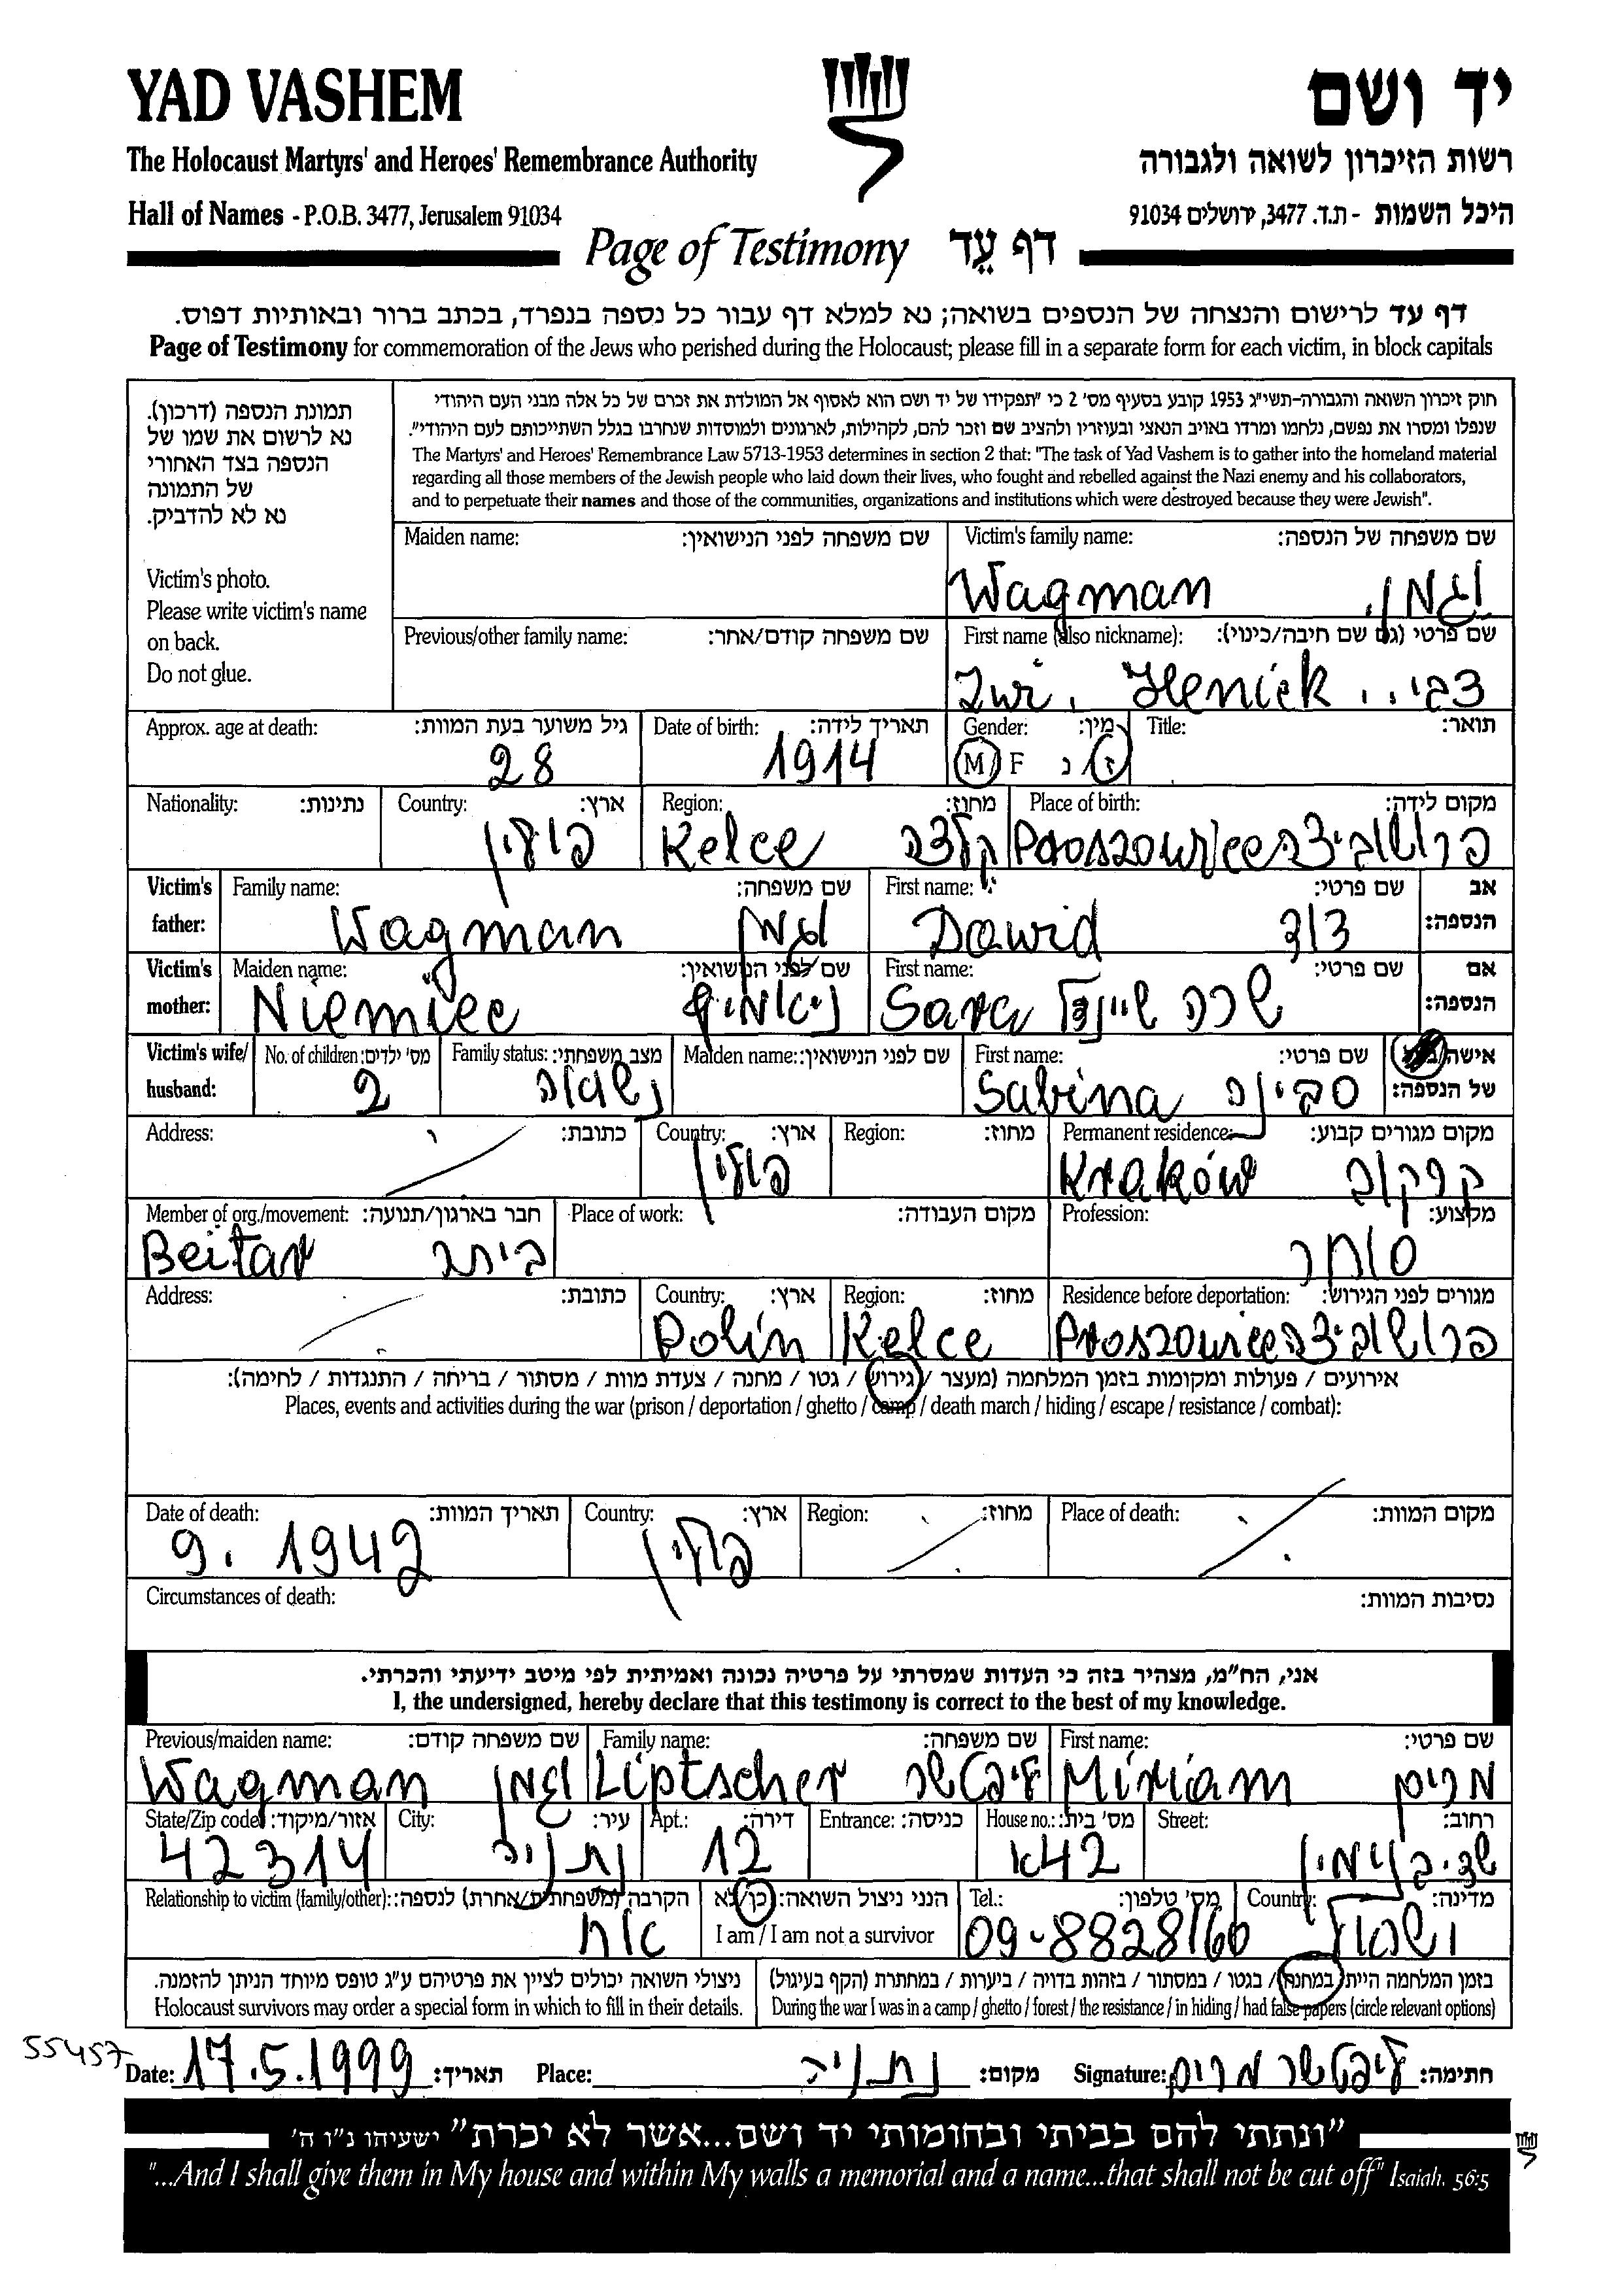 YAD VASHEM
יד ושם
The Holocaust Martyrs' and Heroes' Remembrance Authority
רשות הזיכרון לשואה ולגבורה
Hall of Names - P.O.B. 3477, Jerusalem 91034
היכל השמות - ת.ד. 3477, ירושלים 91034
Page of Testimony דף עֵד
דף עד לרישום והנצחה של הנספים בשואה; נא למלא דף עבור כל נספה בנפרד, בכתב ברור ובאותיות דפוס.
Page of Testimony for commemoration of the Jews who perished during the Holocaust; please fill in a separate form for each victim, in block capitals
תמונת הנספה (דרכון).
נא לרשום את שמו של
הנספה בצד האחורי
של התמונה
נא לא להדביק.
Victim's photo.
Please write victim's name
on back.
Do not glue.
חוק זיכרון השואה והגבורה-תשי"ג 1953 קובע בסעיף מס' 2 כי "תפקידו של יד ושם הוא לאסוף אל המולדת את זכרם של כל אלה מבני העם היהודי
שנפלו ומסרו את נפשם, נלחמו ומרדו באויב הנאצי ובעוזריו ולהציב שם וזכר להם, לקהילות, לארגונים ולמוסדות שנחרבו בגלל השתייכותם לעם היהודי".
The Martyrs' and Heroes' Remembrance Law 5713-1953 determines in section 2 that: "The task of Yad Vashem is to gather into the homeland material
regarding all those members of the Jewish people who laid down their lives, who fought and rebelled against the Nazi enemy and his collaborators,
and to perpetuate their names and those of the communities, organizations and institutions which were destroyed because they were Jewish".
Maiden name: שם משפחה לפני הנישואין: Victim's family name: שם משפחה של הנספה:
Wagman וגמן
Previous/other family name: שם משפחה קודם/אחר: First name (also nickname): שם פרטי (גם שם חיבה/כינוי):
Zwi, Heniek צבי
Approx. age at death: גיל משוער בעת המוות: Date of birth: תאריך לידה: Gender: מין: Title: תואר:
28 1914 M F ז נ
Nationality: נתינות: Country: ארץ: Region: מחוז: Place of birth: מקום לידה:
פולין Kelce קלצה Proszowice פרושוביצה
Victim's father: Family name: שם משפחה: First name: שם פרטי: אב הנספה:
Wagman וגמן Dawid דוד
Victim's mother: Maiden name: שם לפני הנישואין: First name: שם פרטי: אם הנספה:
Niemiec Sara שרה שיינדל
Victim's wife/husband: No. of children: מס' ילדים: Family status: מצב משפחתי: Maiden name: שם לפני הנישואין: First name: שם פרטי: אישה של הנספה:
2 נשוי Sabina סבינה
Address: כתובת: Country: ארץ: Region: מחוז: Permanent residence: מקום מגורים קבוע:
פולין Kraków קרקוב
Member of org./movement: חבר בארגון/תנועה: Place of work: מקום העבודה: Profession: מקצוע:
Beitar ביתר סוחר
Address: כתובת: Country: ארץ: Region: מחוז: Residence before deportation: מגורים לפני הגירוש:
Polin Kelce Proszowice פרושוביצה
אירועים / פעולות ומקומות בזמן המלחמה (מעצר / גירוש / גטו / מחנה / צעדת מוות / מסתור / בריחה / התנגדות / לחימה):
Places, events and activities during the war (prison / deportation / ghetto / camp / death march / hiding / escape / resistance / combat):
Date of death: תאריך המוות: Country: ארץ: Region: מחוז: Place of death: מקום המוות:
9. 1942 פולין
Circumstances of death: נסיבות המוות:
אני, הח"מ, מצהיר בזה כי העדות שמסרתי על פרטיה נכונה ואמיתית לפי מיטב ידיעתי והכרתי.
I, the undersigned, hereby declare that this testimony is correct to the best of my knowledge.
Previous/maiden name: שם משפחה קודם: Family name: שם משפחה: First name: שם פרטי:
Wagman וגמן Liptscher ליפטשר Miriam מרים
State/Zip code: אזור/מיקוד: City: עיר: Apt.: דירה: Entrance: כניסה: House no.: מס' בית: Street: רחוב:
42314 נתניה 12 42א שד' בנימין
Relationship to victim (family/other): הקרבה (משפחתית/אחרת) לנספה: הנני ניצול השואה: כן/לא Tel.: מס' טלפון: Country: מדינה:
אחות I am / I am not a survivor 09-8828160 ישראל
ניצולי השואה יכולים לציין את פרטיהם ע"ג טופס מיוחד הניתן להזמנה. בזמן המלחמה הייתי במחנה / בגטו / במסתור / בזהות בדויה / ביערות / במחתרת (הקף בעיגול)
Holocaust survivors may order a special form in which to fill in their details. During the war I was in a camp / ghetto / forest / the resistance / in hiding / had false papers (circle relevant options)
55457
Date: 17.5.1999 תאריך: Place: נתניה מקום: Signature: ליפטשר מרים חתימה:
"ונתתי להם בביתי ובחומותי יד ושם...אשר לא יכרת" ישעיהו נ"ו ה'
"...And I shall give them in My house and within My walls a memorial and a name...that shall not be cut off" Isaiah. 56:5